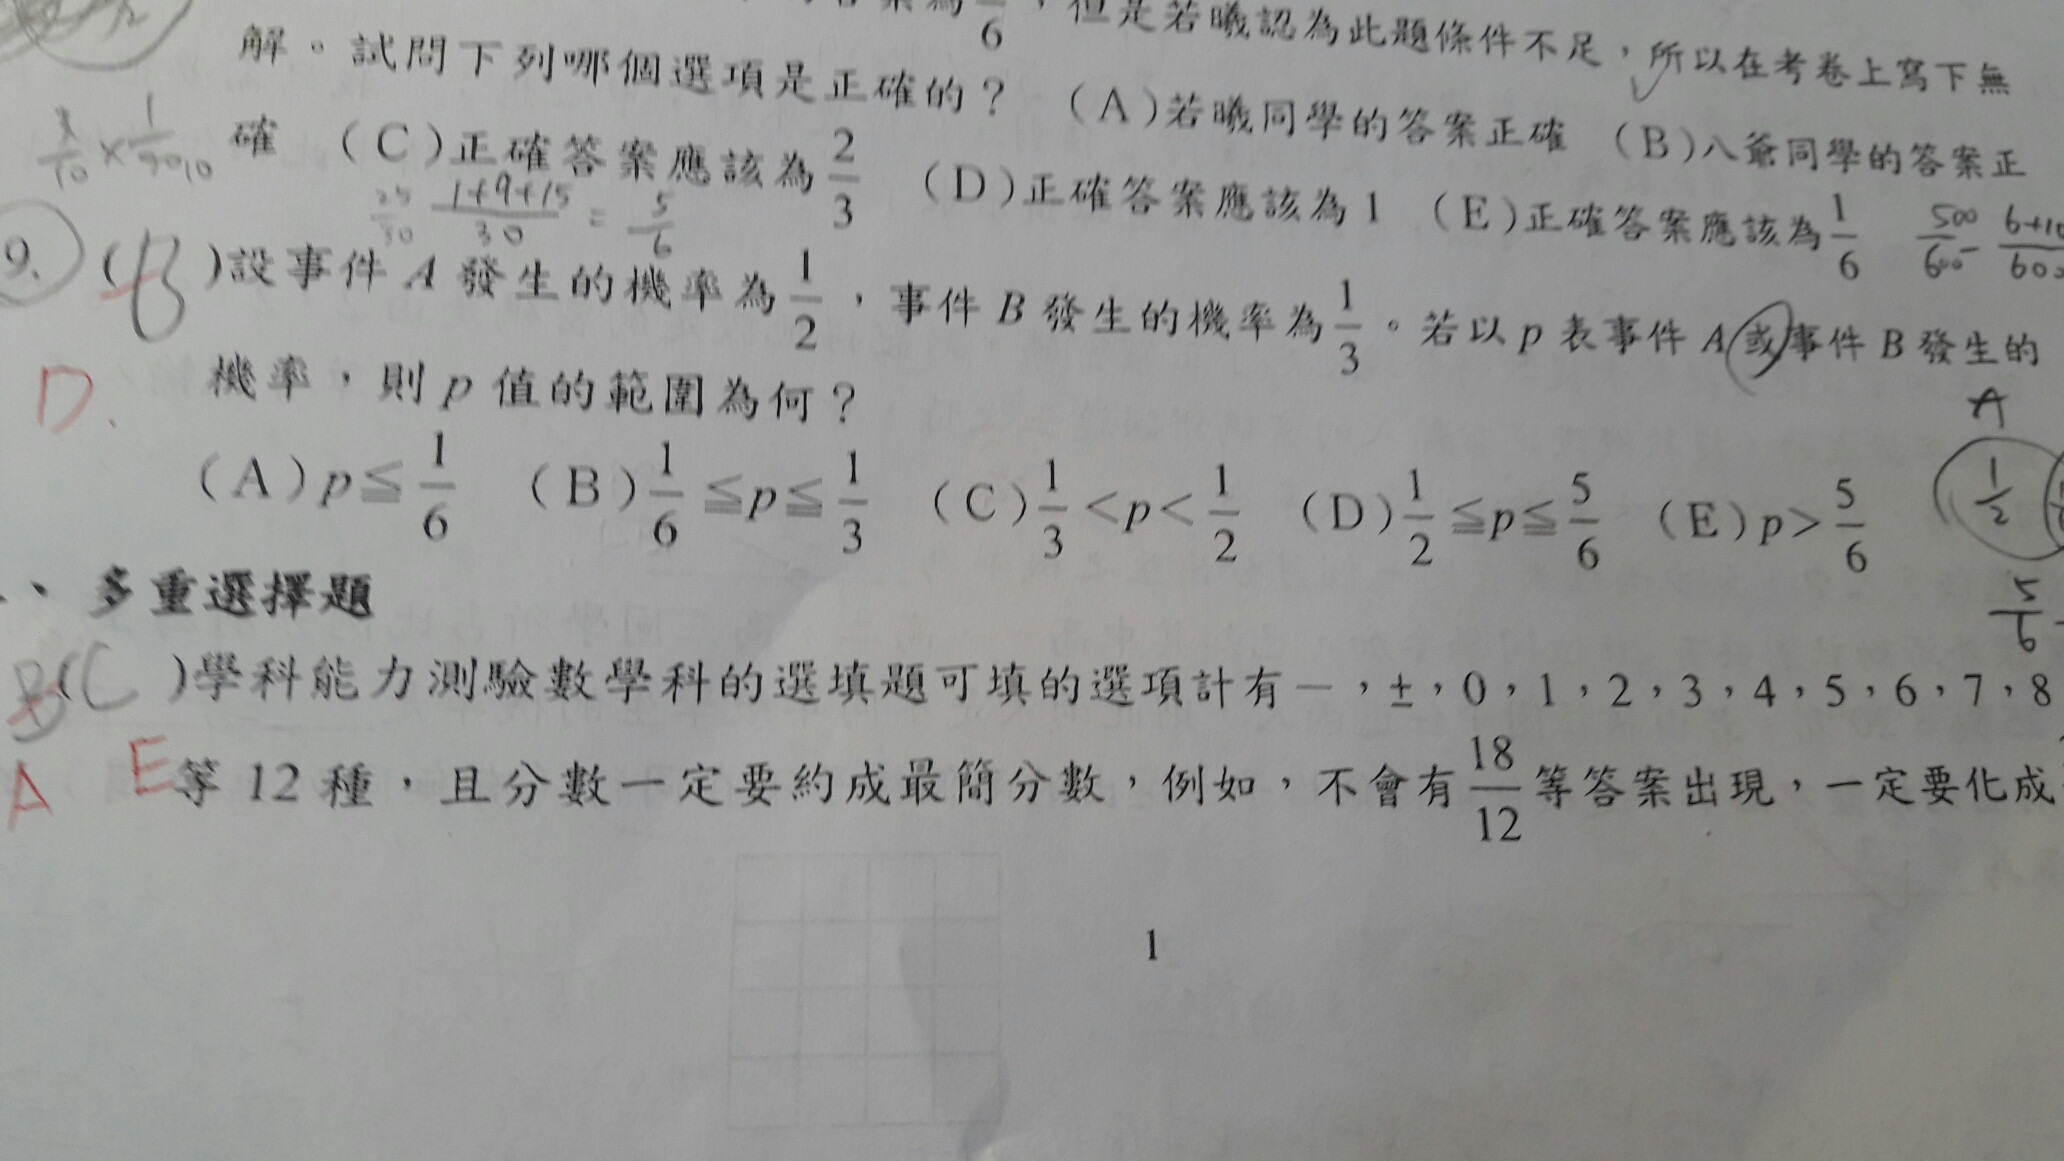 6，但是若曦認為此題條件不足，所以在考卷上寫下無
解。試問下列哪個選項是正確的？ (A)若曦同學的答案正確 (B)八爺同學的答案正
確 (C)正確答案應該為2/3 (D)正確答案應該為1 (E)正確答案應該為1/6
(1+9+15)/30 = 5/6
9. ( B )設事件 A 發生的機率為1/2，事件 B 發生的機率為1/3。若以 p 表事件 A 或事件 B 發生的
D. 機率，則 p 值的範圍為何？
A
(A) p≦1/6 (B) 1/6≦p≦1/3 (C) 1/3<p<1/2 (D) 1/2≦p≦5/6 (E) p>5/6
1/2
5/6
、多重選擇題
B(C )學科能力測驗數學科的選填題可填的選項計有－，±，0，1，2，3，4，5，6，7，8
A E 等 12 種，且分數一定要約成最簡分數，例如，不會有18/12等答案出現，一定要化成
1